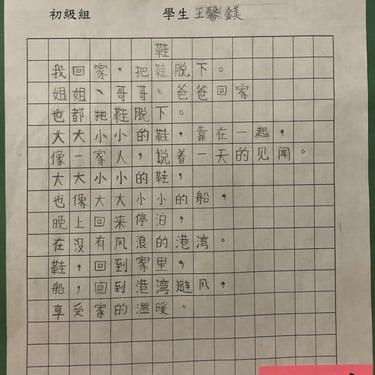 初級組 學生 王馨鎂
鞋
我回家，把鞋脱下。
姐姐、哥哥、爸爸回家
也都把鞋脱下。
大大小小的鞋，靠在一起，
像一家人，说着一天的见闻。
大大小小的鞋，
也像大大小小的船，
晚上回来停泊，
在没有风浪的港湾。
鞋，回到家里，
船，回到港湾避风，
享受家的温暖。